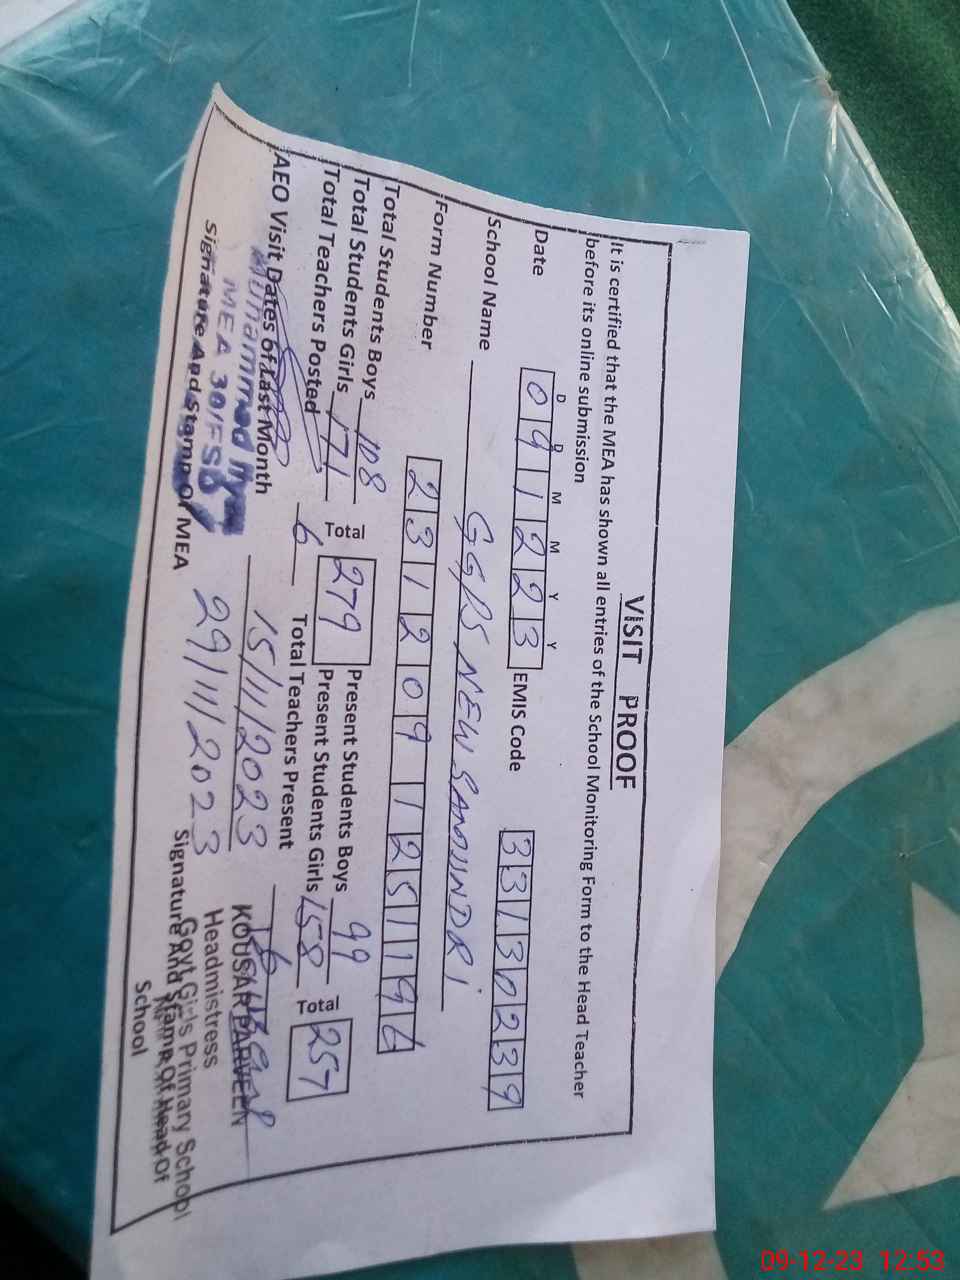 VISIT PROOF
It is certified that the MEA has shown all entries of the School Monitoring Form to the Head Teacher
before its online submission
D D M M Y Y
Date 091223 EMIS Code 33130239
School Name GGPS NEW SANUNDRI
Form Number 23120912511196
Total Students Boys 108 Total 279 Present Students Boys 99 Total 257
Total Students Girls 171 Present Students Girls 158
Total Teachers Posted 6 Total Teachers Present 6
AEO Visit Dates of Last Month 15/11/2023
29/11/2023
Muhammad
MEA 30/FSD
Signature And Stamp Of MEA
KOUSAR PARVEEN
Headmistress
Govt Girls Primary School
Signature And Stamp Of Head Of
School
09-12-23 12:53